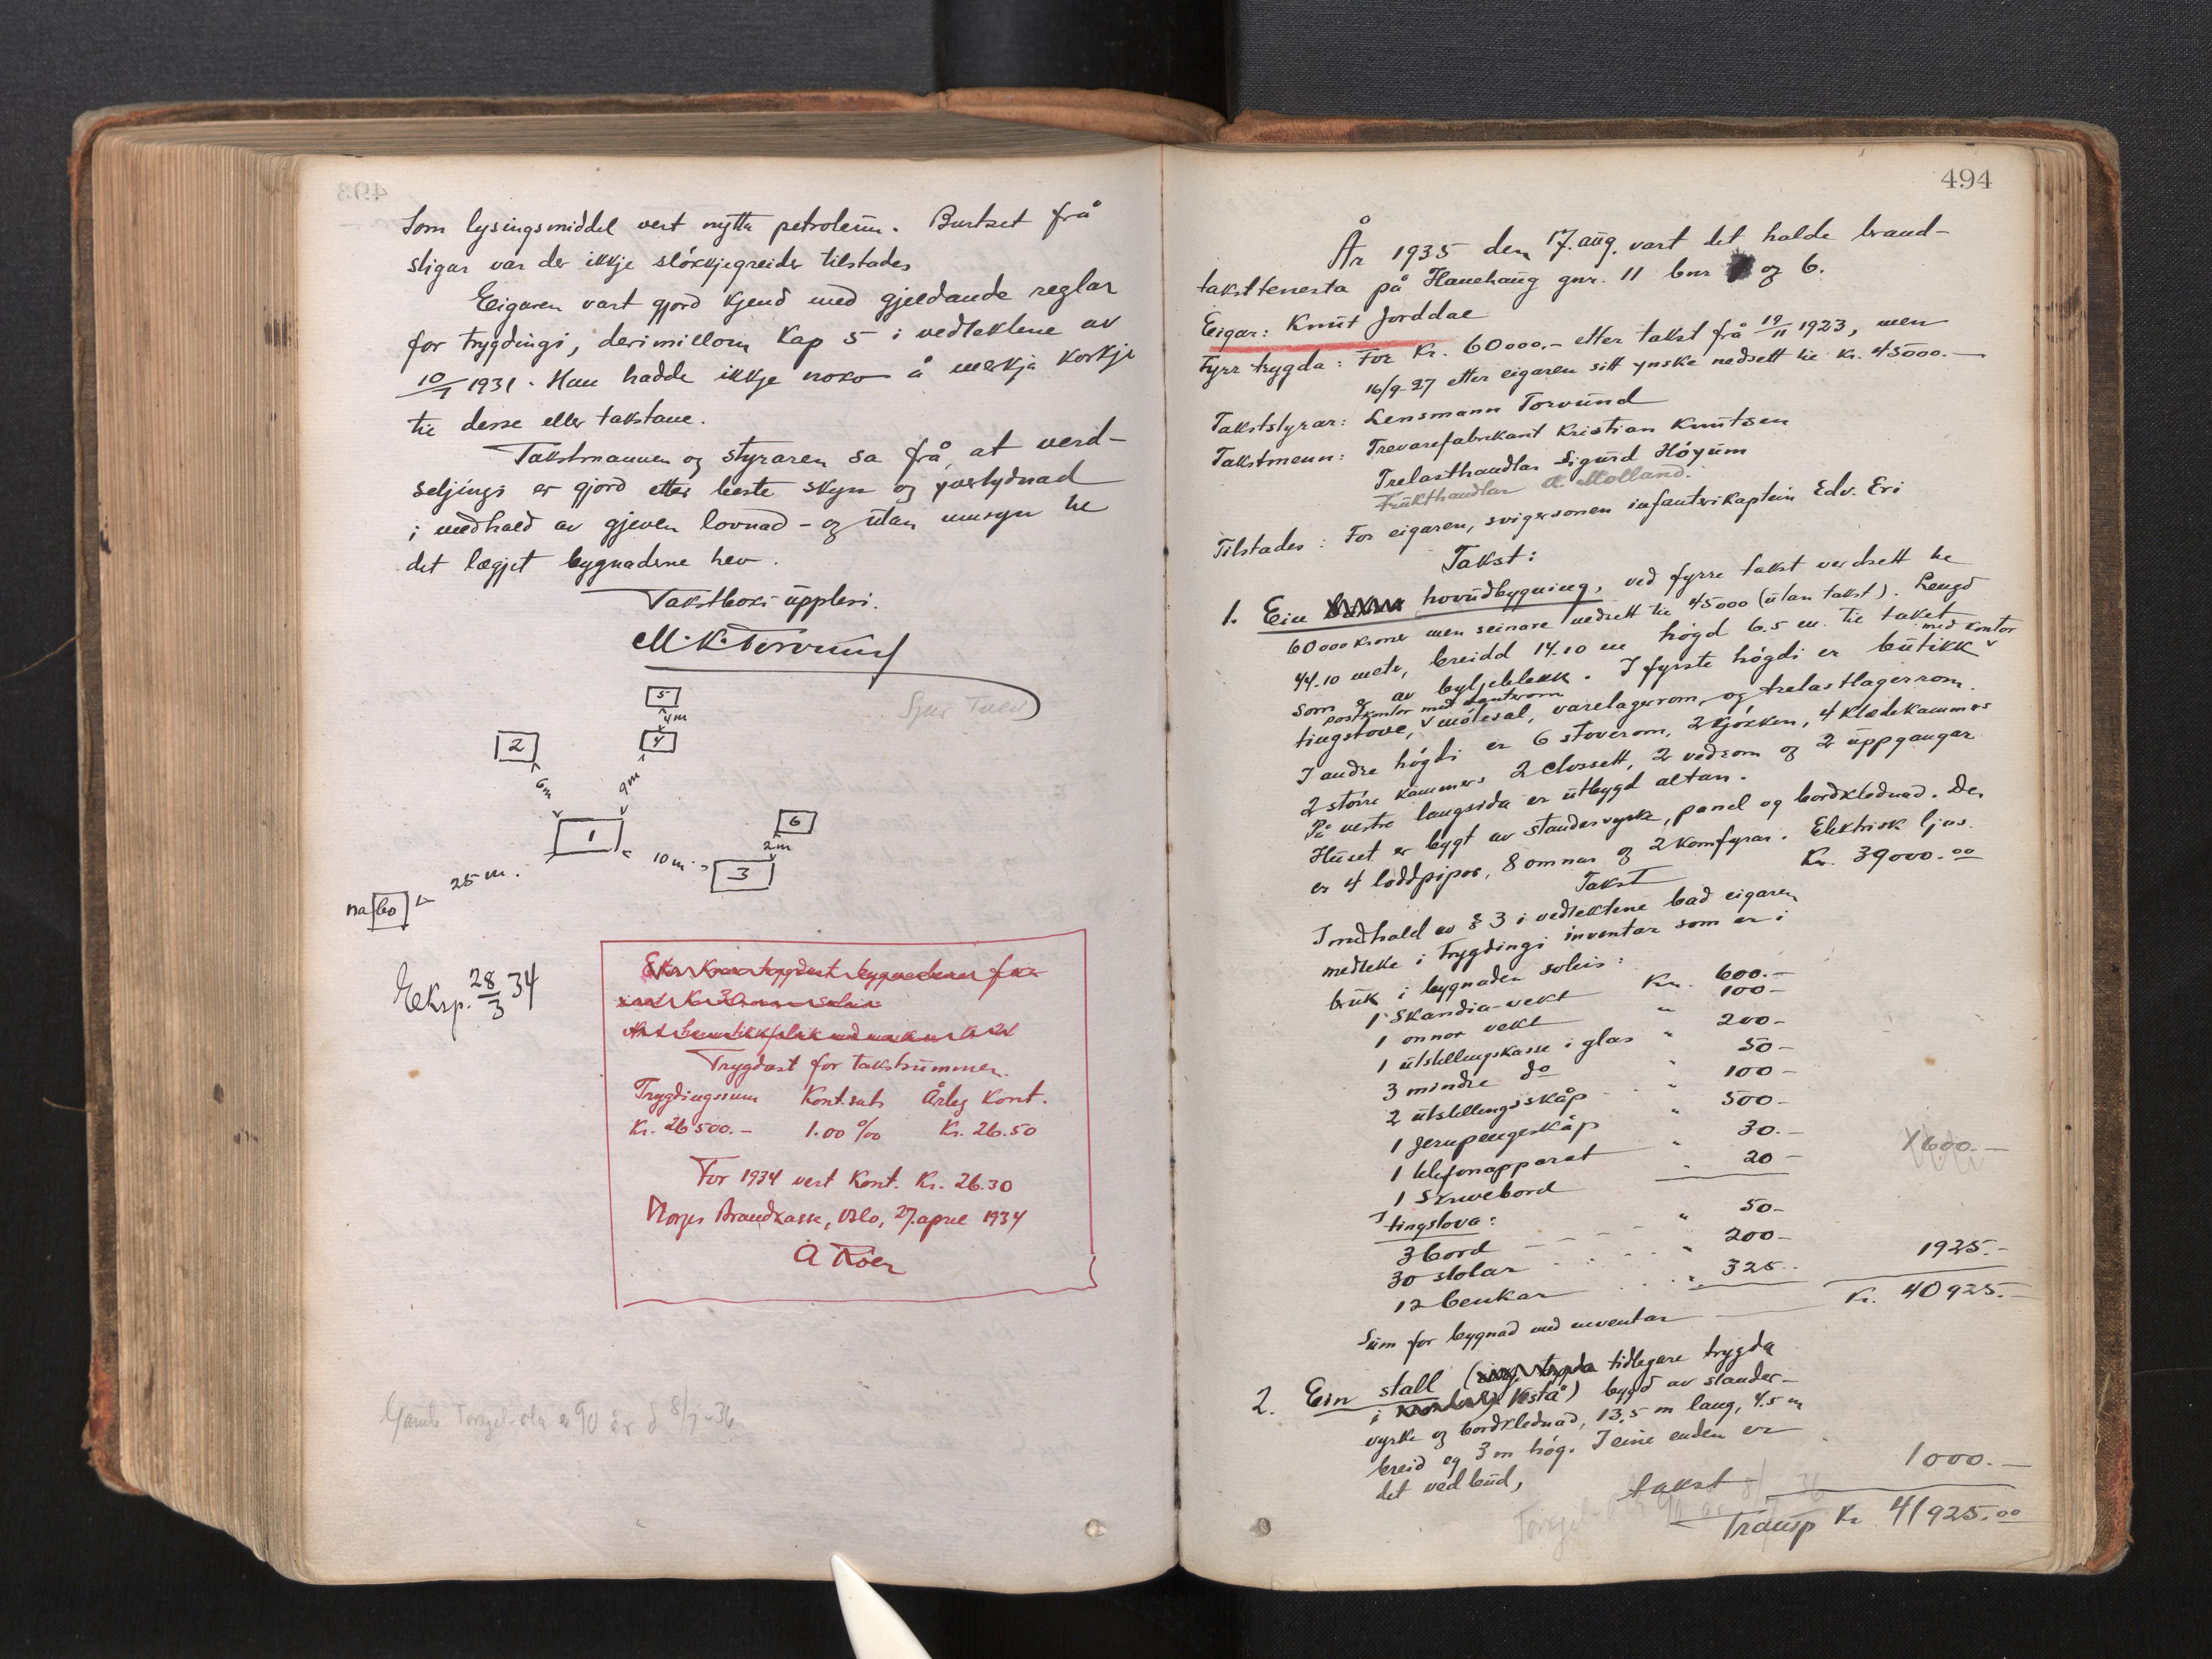 493
Som lysingsmiddel vert nytta petroleum. Burtset frå
stigar var der ikkje sløkkjegreider tilstades
Eigaren vart gjord kjend med gjeldande reglar
for trygdingi, derimillom Kap 5 i vedtektene av
10/7 1931. Han hadde ikkje noko å merkja korkje
til desse eller takstane.
Takstmannen og styraren sa frå, at verd-
seljingi er gjord etter beste skyn og yvertydnad
i medhald av gjeven lovnad - og utan umsyn til
det lægjet bygnadene hev.
Takstboki upplesi.
M. K. Torvund
5
4m
2
4
6m
9m
1
6
2m
10m
3
25 m.
nabo
Eksp. 28/3 34
Trygdast for takstsummen.
Trygdingssum Kont.sats Årleg Kont.
Kr. 26500.- 1.00 ‰ Kr. 26.50
For 1934 vert Kont. Kr. 26.30
Norges Brandkasse, Oslo, 27. april 1934
A Roen
Gamle er 90 år d. 8/7-36
494
År 1935 den 17. aug. vart det halde brand-
taksttenesta på Hauehaug gnr. 11 bnr og 6.
Eigar: Knut Jorddal
Fyrr trygda: For Kr. 60000.- etter takst frå 19/11 1923, men
16/9-27 etter eigaren sitt ynske nedsett til Kr. 45000.-
Takststyrar: Lensmann Torvund
Takstmenn: Trevarefabrikant Kristian Knutsen
Trelasthandlar Sigurd Höyum
Frukthandlar A. Molland.
Tilstades: For eigaren, svigersonen infanterikaptein Edv. Eri
Takst:
1. Ein hovudbygning, ved fyrre takst verdsett til
60000 kroner men seinare nedsett til 45000 (utan takst). Lengd
44.10 meter, breidd 14.10 m høgd 6.5 m. til taket
som er av bylgjeblekk. I fyrste høgdi er butikk med kontor
tingstove, postkontor med venterom møtesal, varelagerrom, og trelastlagerrom.
I andre høgdi er 6 stoverom, 2 kjøkken, 4 klædekammers
2 større kammers 2 clossett, 2 vedrom og 2 uppgangar
På vestre langsida er utbygd altan.
Huset er bygt av standervyrke, panel og bordklednad. Der
er 4 loddpipor, 8 omnar og 2 komfyrar. Elektrisk ljos.
Takst Kr. 39000.00
I medhald av § 3 i vedtektene bad eigaren
medteke i trygdingi inventar som er i
bruk i bygnaden soleis:
1 Skandia-vekt Kr. 600.-
1 onnor vekt " 100-
1 utstillingskasse i glas " 200-
3 mindre do " 50-
2 utstillingsskåp " 100-
1 Jernpengeskåp " 500-
1 telefonapparat " 30.-
1 Skrivebord " 20-
1600.-
I tingstova:
3 bord " 50-
30 stolar " 200-
12 benkar " 325.- 1925.-
Sum for bygnad med inventar Kr. 40925.-
2. Ein stall (tidlegare trygda
i Vestå) bygd av stander-
vyrke og bordklednad, 13,5 m lang, 4.5 m
breid og 3 m høg. I eine enden er
det vedbud,
takst 1000.-
Transp Kr 41925.00